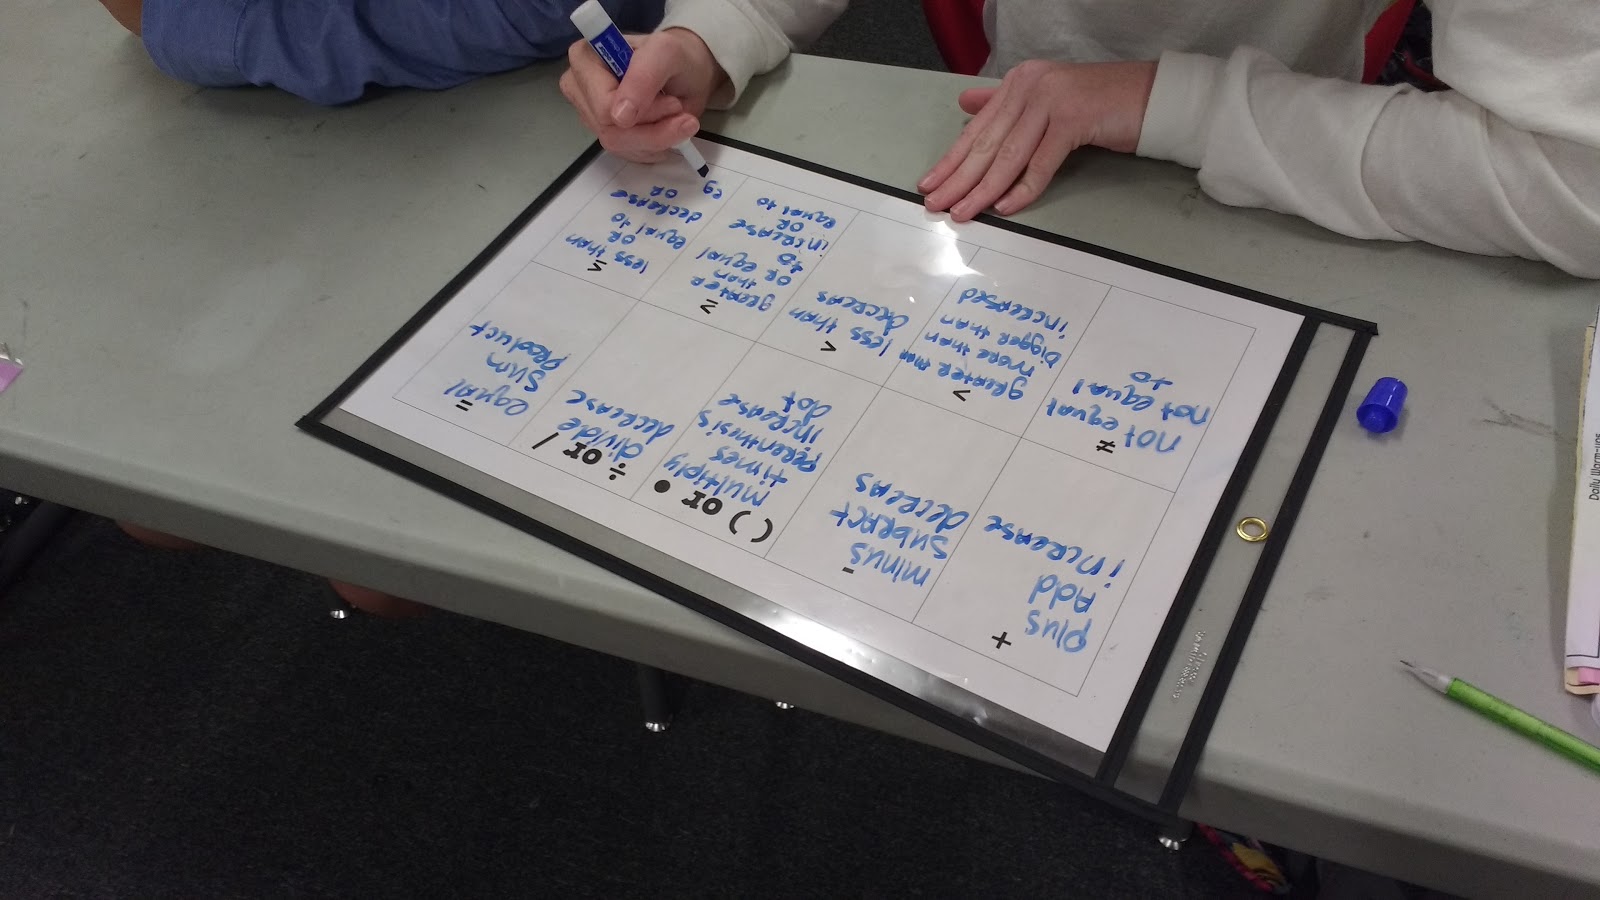 +
plus
Add
increase
-
minus
subract
decreas
( ) or •
multiply
times
perenthesis
increase
dot
÷ or /
divide
decrease
=
equal
sum
product
≠
not equal
not equal
to
>
greater than
more than
bigger than
increased
<
less than
decreas
≥
greater
than
or equal
to
increase
OR
equal to
≤
less than
OR
equal to
decrease
OR
eq
Daily Warm-ups